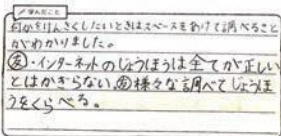 学んだこと
何かをけんさくしたいときはスペースをあけて調べること
がわかりました。
友・インターネットのじょうほうは全てが正しい
とはかぎらない、友様々な調べてじょうほ
うをくらべる。